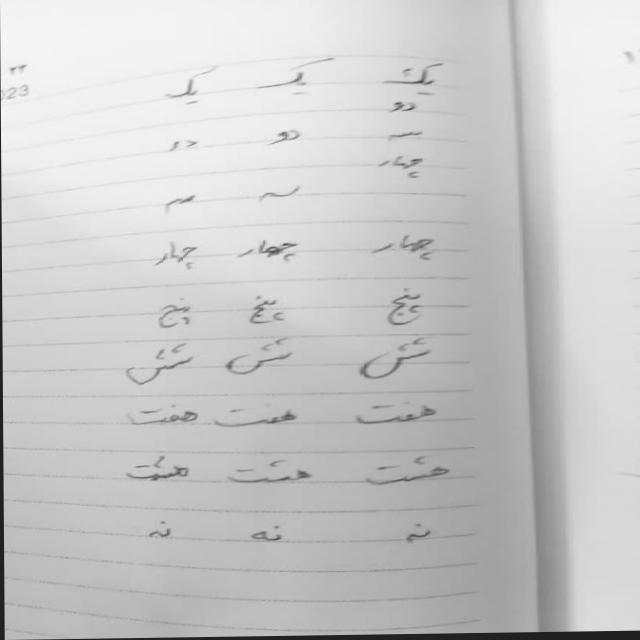 یک یک یک
دو
سه دو دو
چهار
سه سه
چهار چهار چهار
پنج پنج پنج
شش شش شش
هفت هفت هفت
هشت هشت هشت
نه نه نه